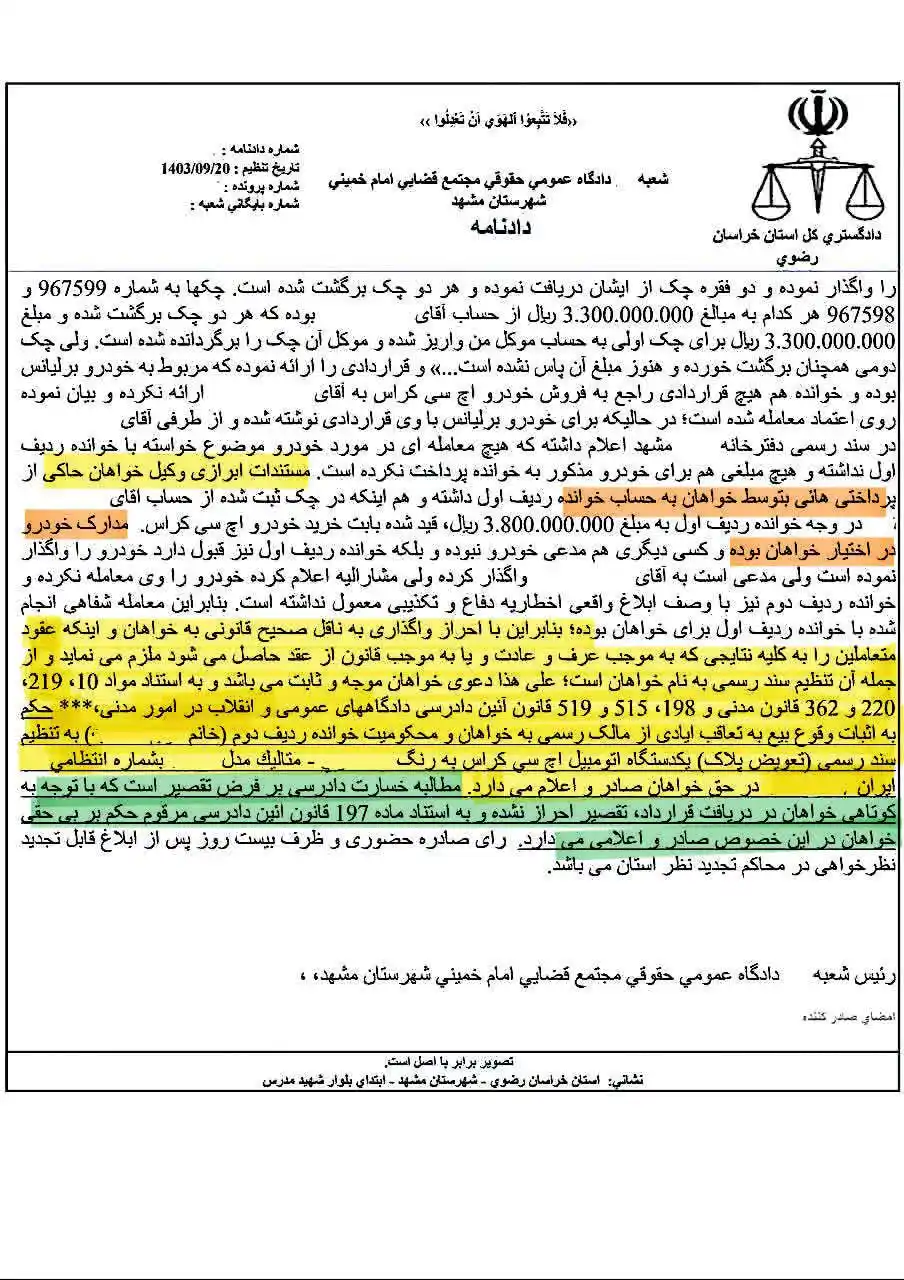 «فَلاَ تَتَّبِعوُا اَلهَوَي اَنْ تَعْدِلُوا »
شماره دادنامه :
تاریخ تنظیم : 1403/09/20
شماره پرونده :
شماره بایگاني شعبه :
شعبه دادگاه عمومي حقوقي مجتمع قضایي امام خمیني
شهرستان مشهد
دادنامه
دادگستري کل استان خراسان
رضوي
را واگذار نموده و دو فقره چک از ایشان دریافت نموده و هر دو چک برگشت شده است. چکها به شماره 967599 و
967598 هر کدام به مبالغ 3.300.000.000 ریال از حساب آقای بوده که هر دو چک برگشت شده و مبلغ
3.300.000.000 ریال برای چک اولی به حساب موکل من واریز شده و موکل آن چک را برگردانده شده است. ولی چک
دومی همچنان برگشت خورده و هنوز مبلغ آن پاس نشده است...» و قراردادی را ارائه نموده که مربوط به خودرو برلیانس
بوده و خوانده هم هیچ قراردادی راجع به فروش خودرو اچ سی کراس به آقای ارائه نکرده و بیان نموده
روی اعتماد معامله شده است؛ در حالیکه برای خودرو برلیانس با وی قراردادی نوشته شده و از طرفی آقای
در سند رسمی دفترخانه مشهد اعلام داشته که هیچ معامله ای در مورد خودرو موضوع خواسته با خوانده ردیف
اول نداشته و هیچ مبلغی هم برای خودرو مذکور به خوانده پرداخت نکرده است. مستندات ابرازی وکیل خواهان حاکی از
پرداختی هائی بتوسط خواهان به حساب خوانده ردیف اول داشته و هم اینکه در چک ثبت شده از حساب اقای
در وجه خوانده ردیف اول به مبلغ 3.800.000.000 ریال، قید شده بابت خرید خودرو اچ سی کراس. مدارک خودرو
در اختیار خواهان بوده و کسی دیگری هم مدعی خودرو نبوده و بلکه خوانده ردیف اول نیز قبول دارد خودرو را واگذار
نموده است ولی مدعی است به آقای واگذار کرده ولی مشارالیه اعلام کرده خودرو را وی معامله نکرده و
خوانده ردیف دوم نیز با وصف ابلاغ واقعی اخطاریه دفاع و تکذیبی معمول نداشته است. بنابراین معامله شفاهی انجام
شده با خوانده ردیف اول برای خواهان بوده؛ بنابراین با احراز واگذاری به ناقل صحیح قانونی به خواهان و اینکه عقود
متعاملین را به کلیه نتایجی که به موجب عرف و عادت و یا به موجب قانون از عقد حاصل می شود ملزم می نماید و از
جمله آن تنظیم سند رسمی به نام خواهان است؛ علی هذا دعوی خواهان موجه و ثابت می باشد و به استناد مواد 10، 219،
220 و 362 قانون مدنی و 198، 515 و 519 قانون آئین دادرسی دادگاههای عمومی و انقلاب در امور مدنی،*** حکم
به اثبات وقوع بیع به تعاقب ایادی از مالک رسمی به خواهان و محکومیت خوانده ردیف دوم (خانم ) به تنظیم
سند رسمی (تعویض پلاک) یکدستگاه اتومبیل اچ سي کراس به رنگ - متالیك مدل بشماره انتظامي
ایران در حق خواهان صادر و اعلام می دارد. مطالبه خسارت دادرسی بر فرض تقصیر است که با توجه به
کوتاهی خواهان در دریافت قرارداد، تقصیر احراز نشده و به استناد ماده 197 قانون ائین دادرسی مرقوم حکم بر بی حقی
خواهان در این خصوص صادر و اعلامی می دارد. رای صادره حضوری و ظرف بیست روز پس از ابلاغ قابل تجدید
نظرخواهی در محاکم تجدید نظر استان می باشد.
رئیس شعبه دادگاه عمومي حقوقي مجتمع قضایي امام خمیني شهرستان مشهد، ،
امضاي صادر کننده
تصویر برابر با اصل است.
نشاني: استان خراسان رضوي - شهرستان مشهد - ابتداي بلوار شهید مدرس